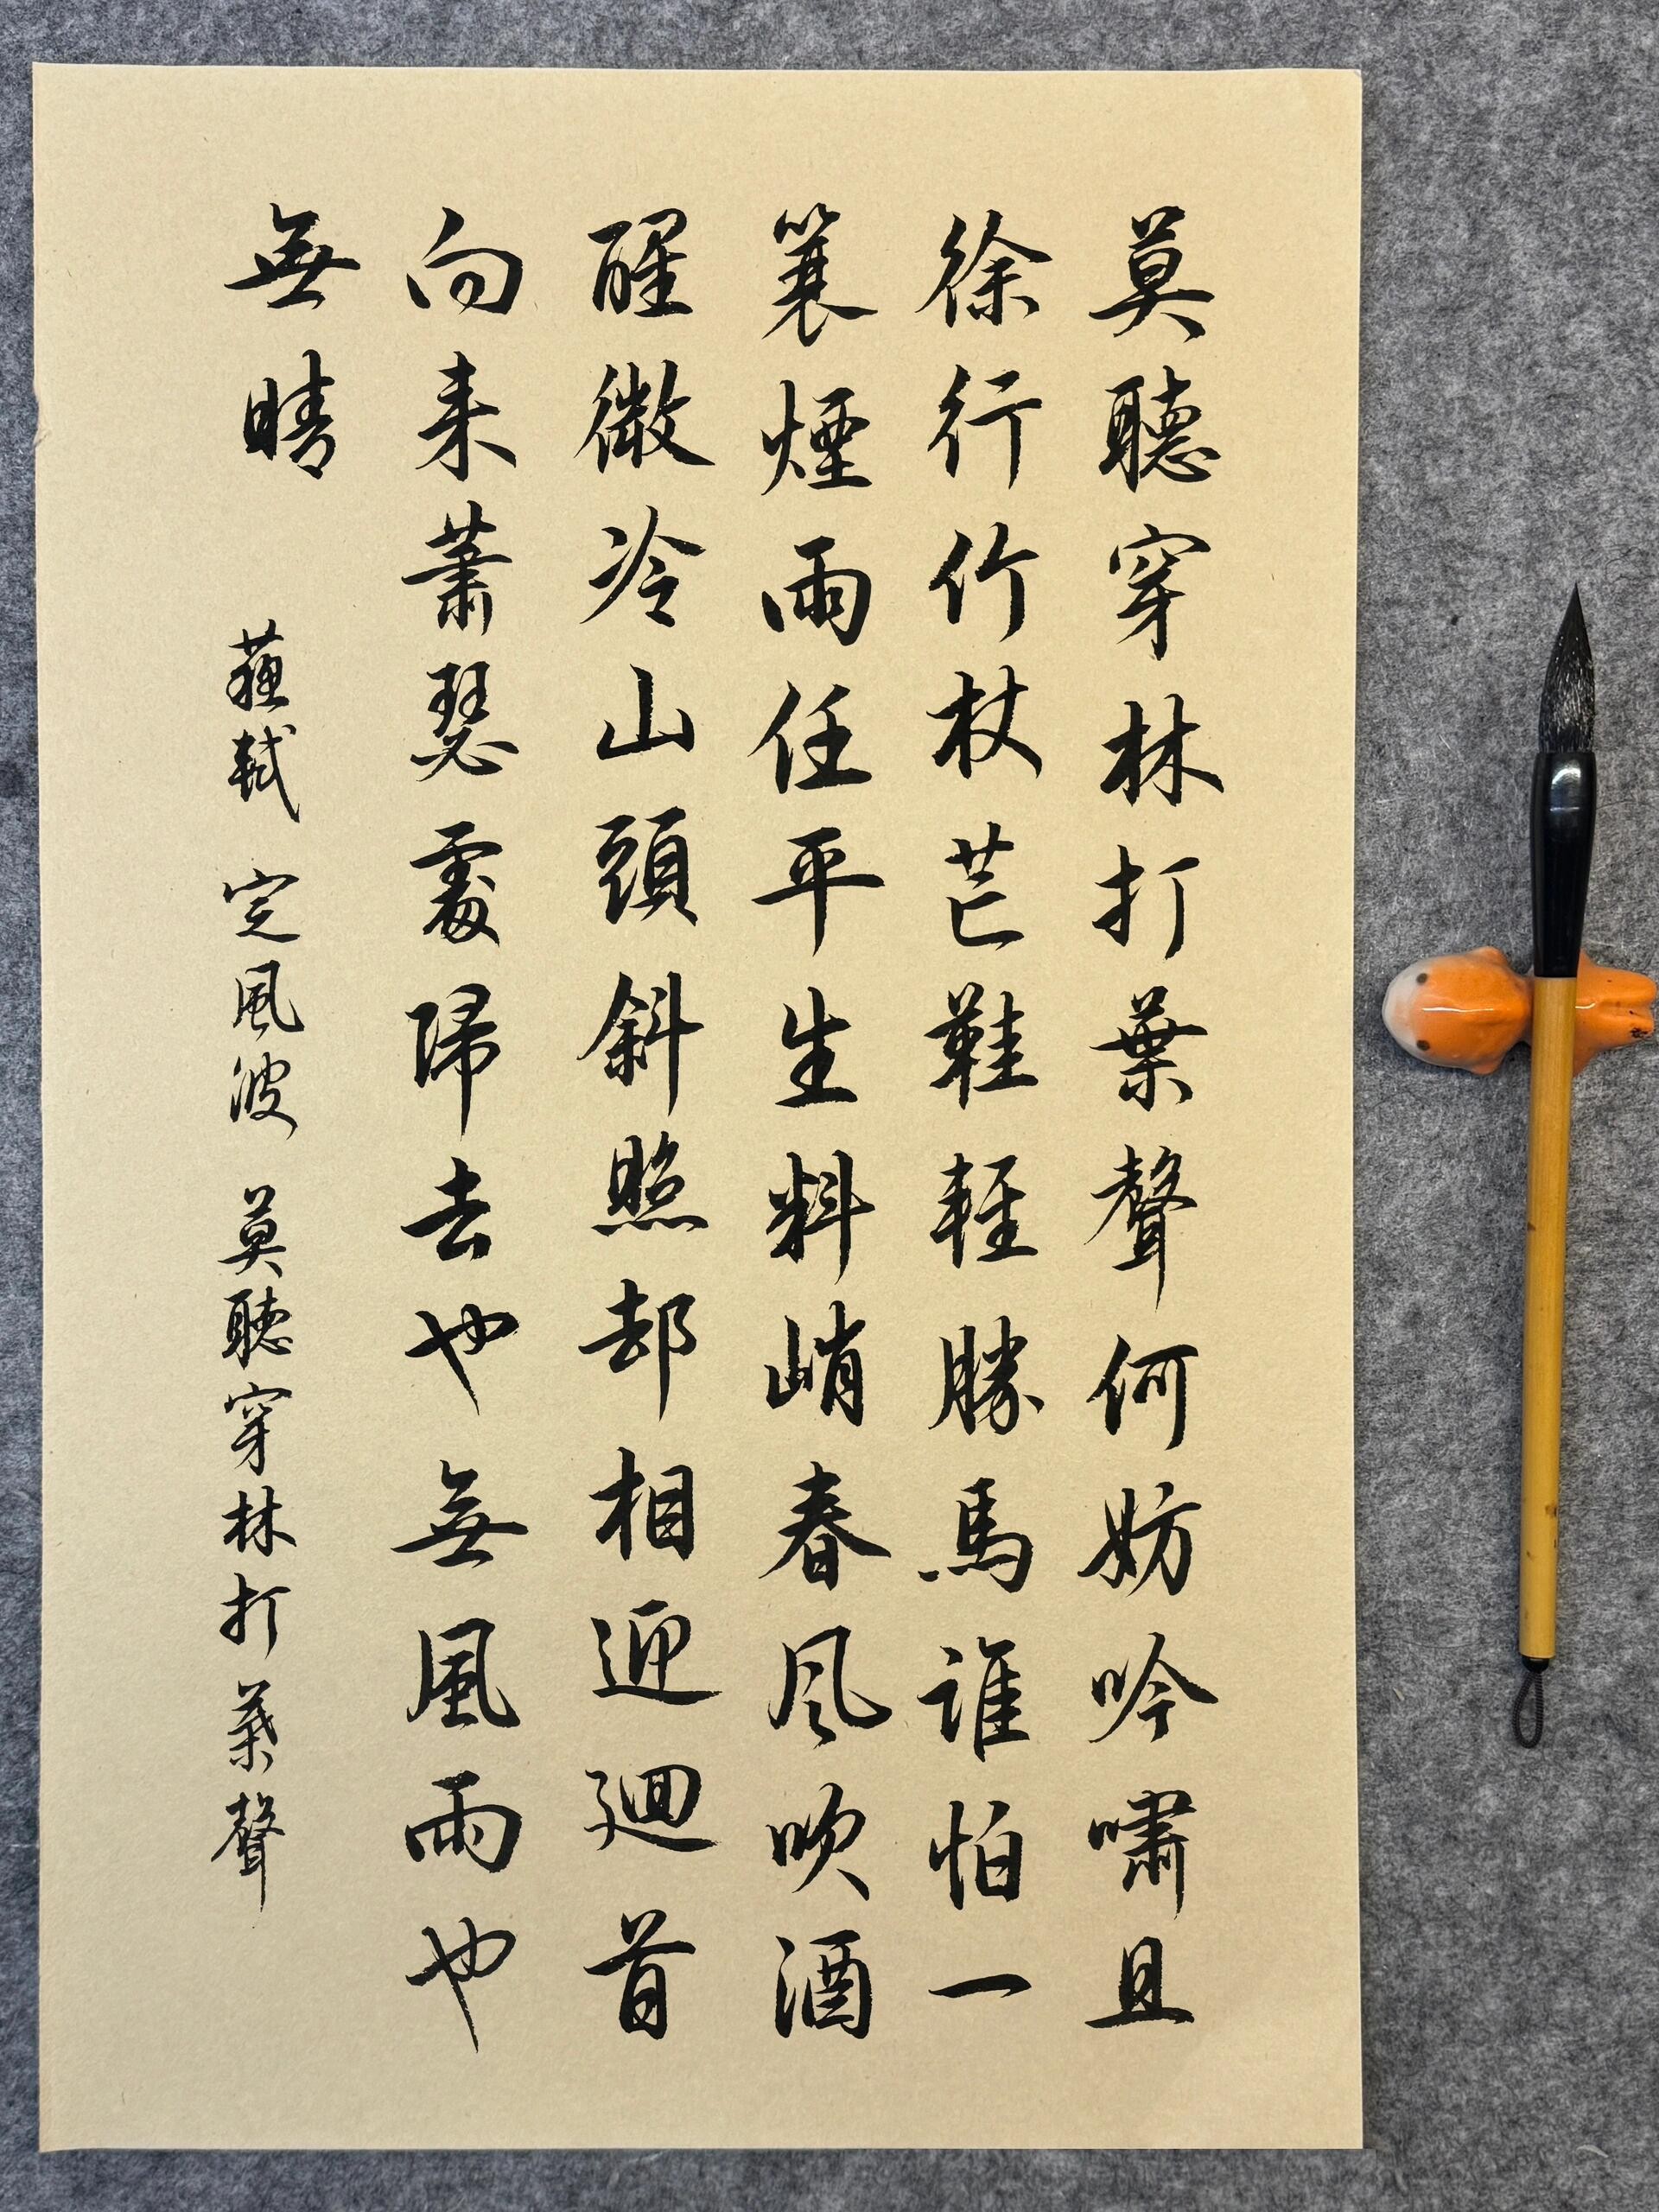 莫聽穿林打葉聲何妨吟嘯且
徐行竹杖芒鞋輕勝馬誰怕一
蓑煙雨任平生料峭春风吹酒
醒微冷山頭斜照却相迎迴首
向来蕭瑟處歸去也無風雨也
無晴
蘇軾 定風波 莫聽穿林打葉聲